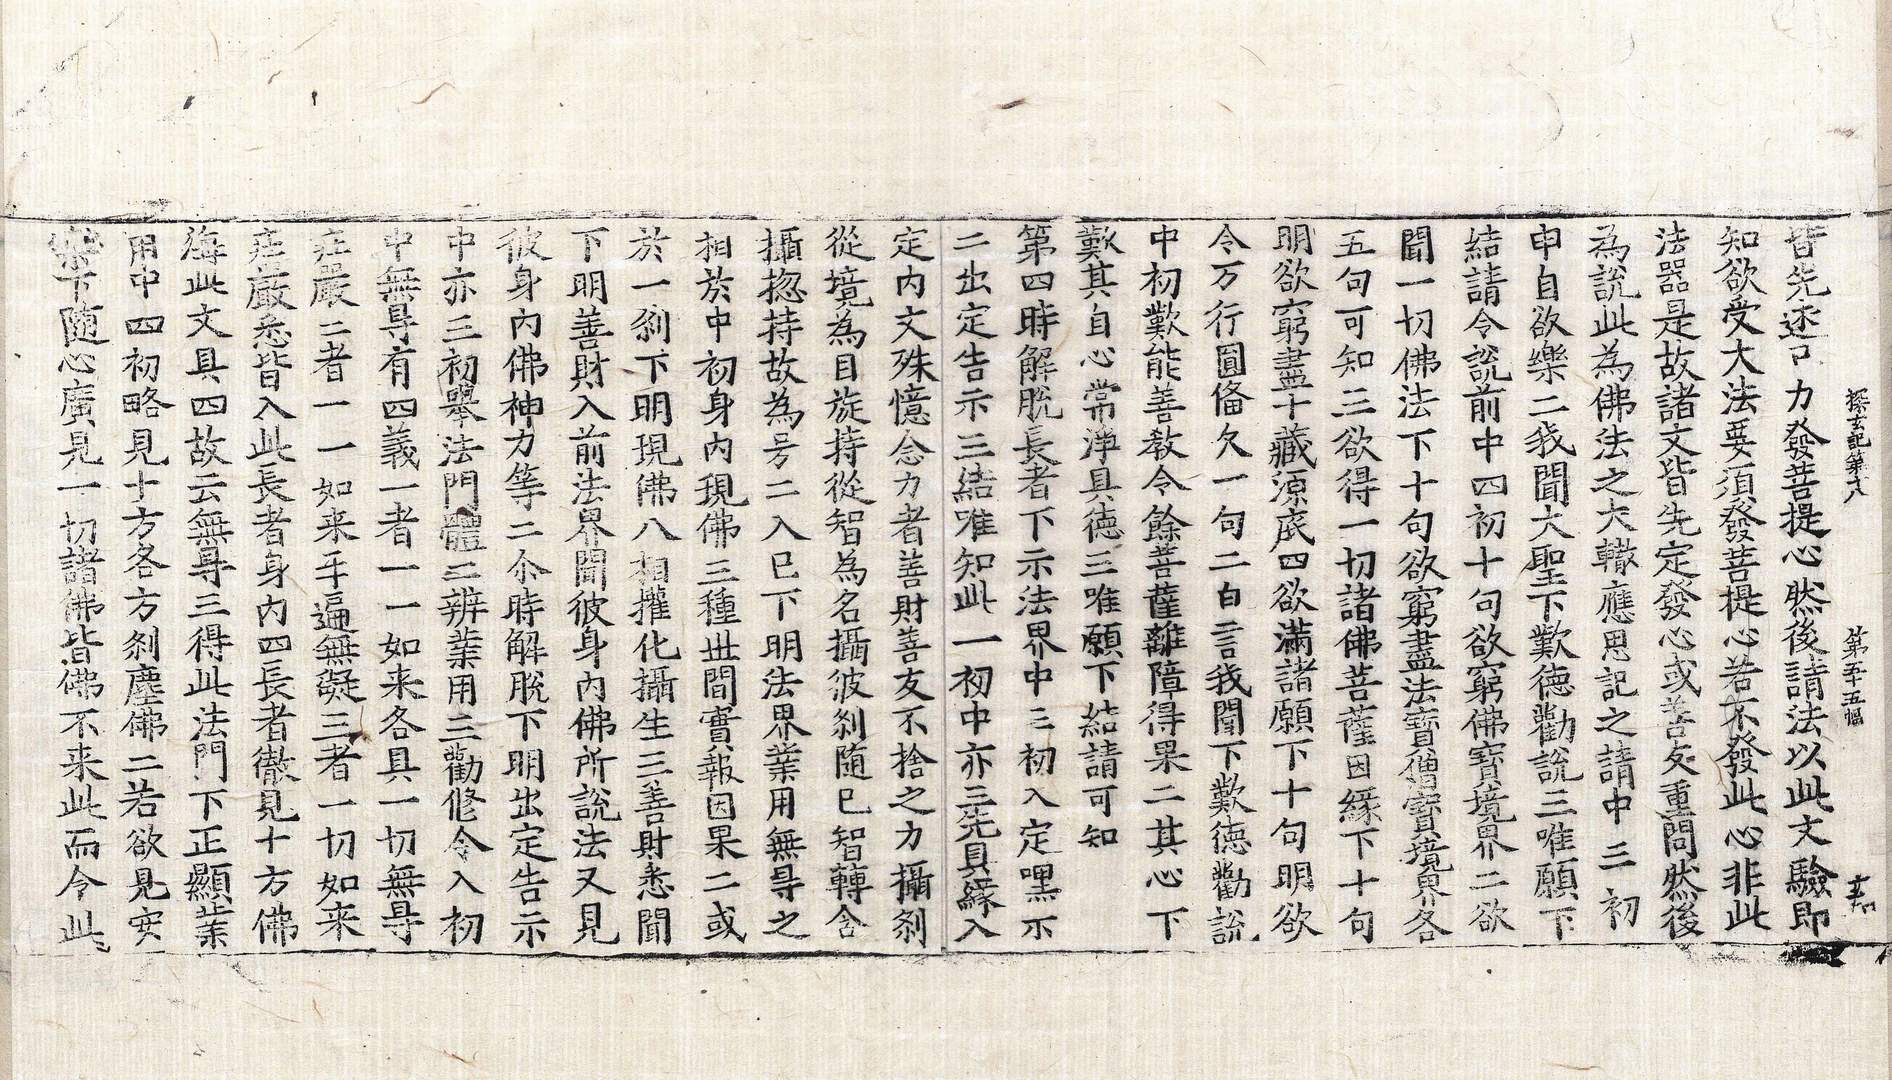 探玄記第十八 第五十五幅 玄
皆先述己力發菩提心然後請法以此文驗即
知欲受大法要須發菩提心若不發此心非此
法器是故諸文皆先定發心或善友重問然後
為說此為佛法之大轍應思記之請中三初
申自欲樂二我聞大聖下歎德勸說三唯願下
結請令說前中四初十句欲窮佛寶境界二欲
聞一切佛法下十句欲窮盡法寶僧寶境界各
五句可知三欲得一切諸佛菩薩因緣下十句
明欲窮盡十藏源底四欲滿諸願下十句明欲
令万行圓俻欠一句二白言我聞下歎德勸說
中初歎能善教令餘菩薩離障得果二其心下
歎其自心常淨具德三唯願下結請可知
第四時解脫長者下示法界中三初入定嘿示
二出定告示三結唯知此一初中亦三先具緣入
定内文殊憶念力者善財善友不捨之力攝刹
從境為目旋持從智為名攝彼刹随已智轉含
攝惣持故為号二入已下明法界業用無㝵之
相於中初身内現佛三種世間實報因果二或
於一刹下明現佛八相攝化攝生三善財悉聞
下明善財入前法界聞彼身内佛所說法又見
彼身内佛神力等二尒時解脫下明出定告示
中亦三初舉法門體二辨業用三勸修令入初
中無㝵有四義一者一一如来各具一切無㝵
庄嚴二者一一如来平遍無礙三者一切如来
庄嚴悉皆入此長者身内四長者徹見十方佛
海此文具四故云無㝵三得此法門下正顯業
用中四初略見十方各方刹塵佛二若欲見安
樂下随心廣見一切諸佛皆佛不来此而令此